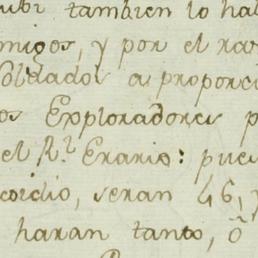 ubi tambien lo ha
migos, y por el ra
oldados a proporci
os Exploradores p
el R.l Erario: pues
cordio, seran 46, y
haran tanto, ô